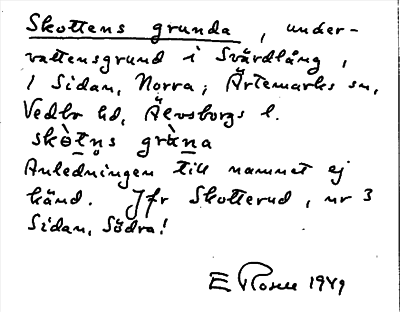 Skottens grunda, under-
vattensgrund i Svärdlång,
1 Sidan, Norra, Ärtemarks sn,
Vedbo hd, Älvsborgs l.
skòtn̥s grùna
Anledningen till namnet ej
känd. Jfr Skotterud, nr 3
Sidan, Södra!
E Rosell 1949